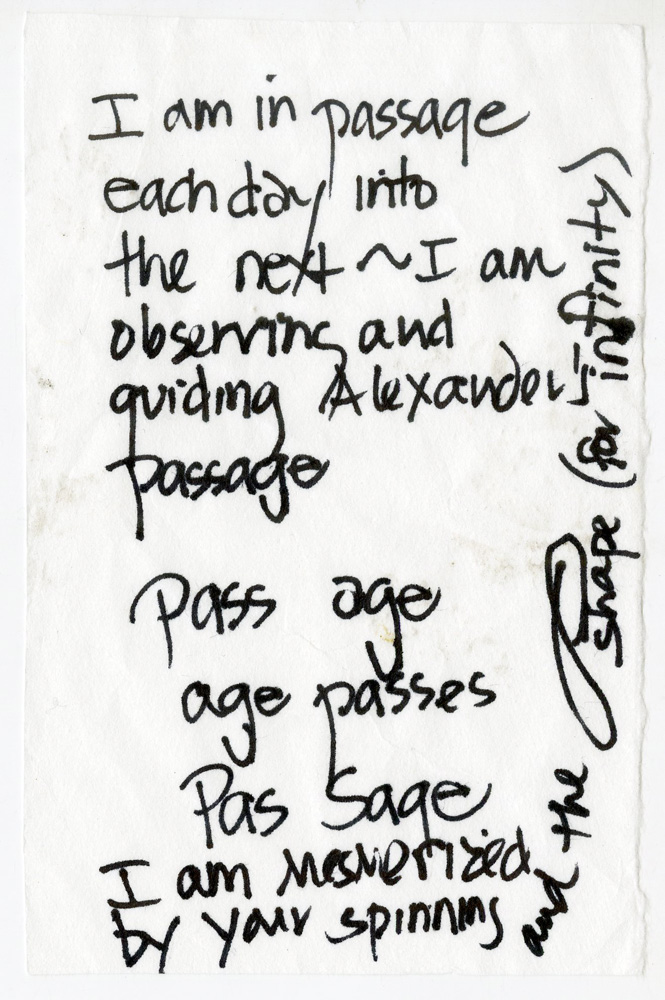 I am in passage
each day into
the next ~ I am
observing and
guiding Alexander's
passage
Pass age
age passes
Pas Sage
I am mesmerized
by your spinning
and the shape (for infinity)